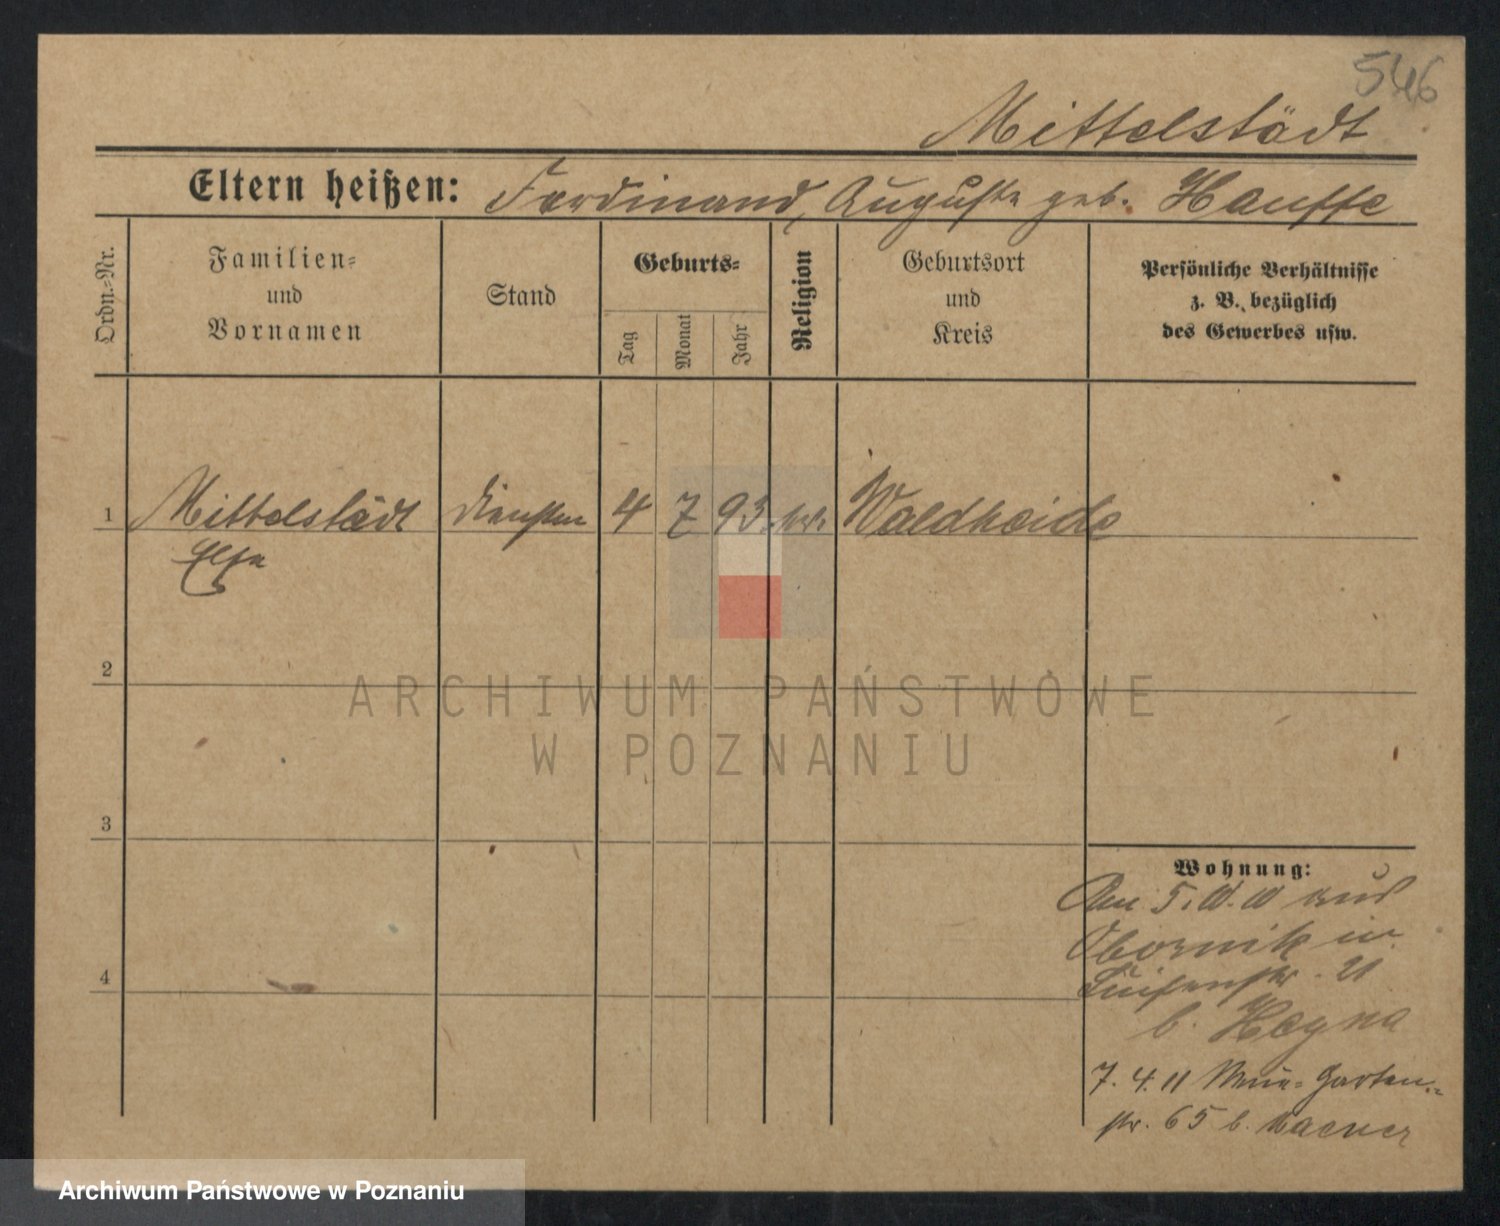 546
Mittelstädt
Eltern heißen: Ferdinand, Auguste geb. Hauffe
Ordn.-Nr.
Familien-
und
Vornamen
Stand
Geburts-
Tag
Monat
Jahr
Religion
Geburtsort
und
Kreis
Persönliche Verhältnisse
z. B. bezüglich
des Gewerbes usw.
1 Mittelstädt 4 7 93 Waldheide
Else
2
ARCHIWUM PAŃSTWOWE
W POZNANIU
3
4
Wohnung:
aus
Obornik in
Luisenstr.
b. Hegna
7. 4. 11 Garten-
str. 65 b.
Archiwum Państwowe w Poznaniu